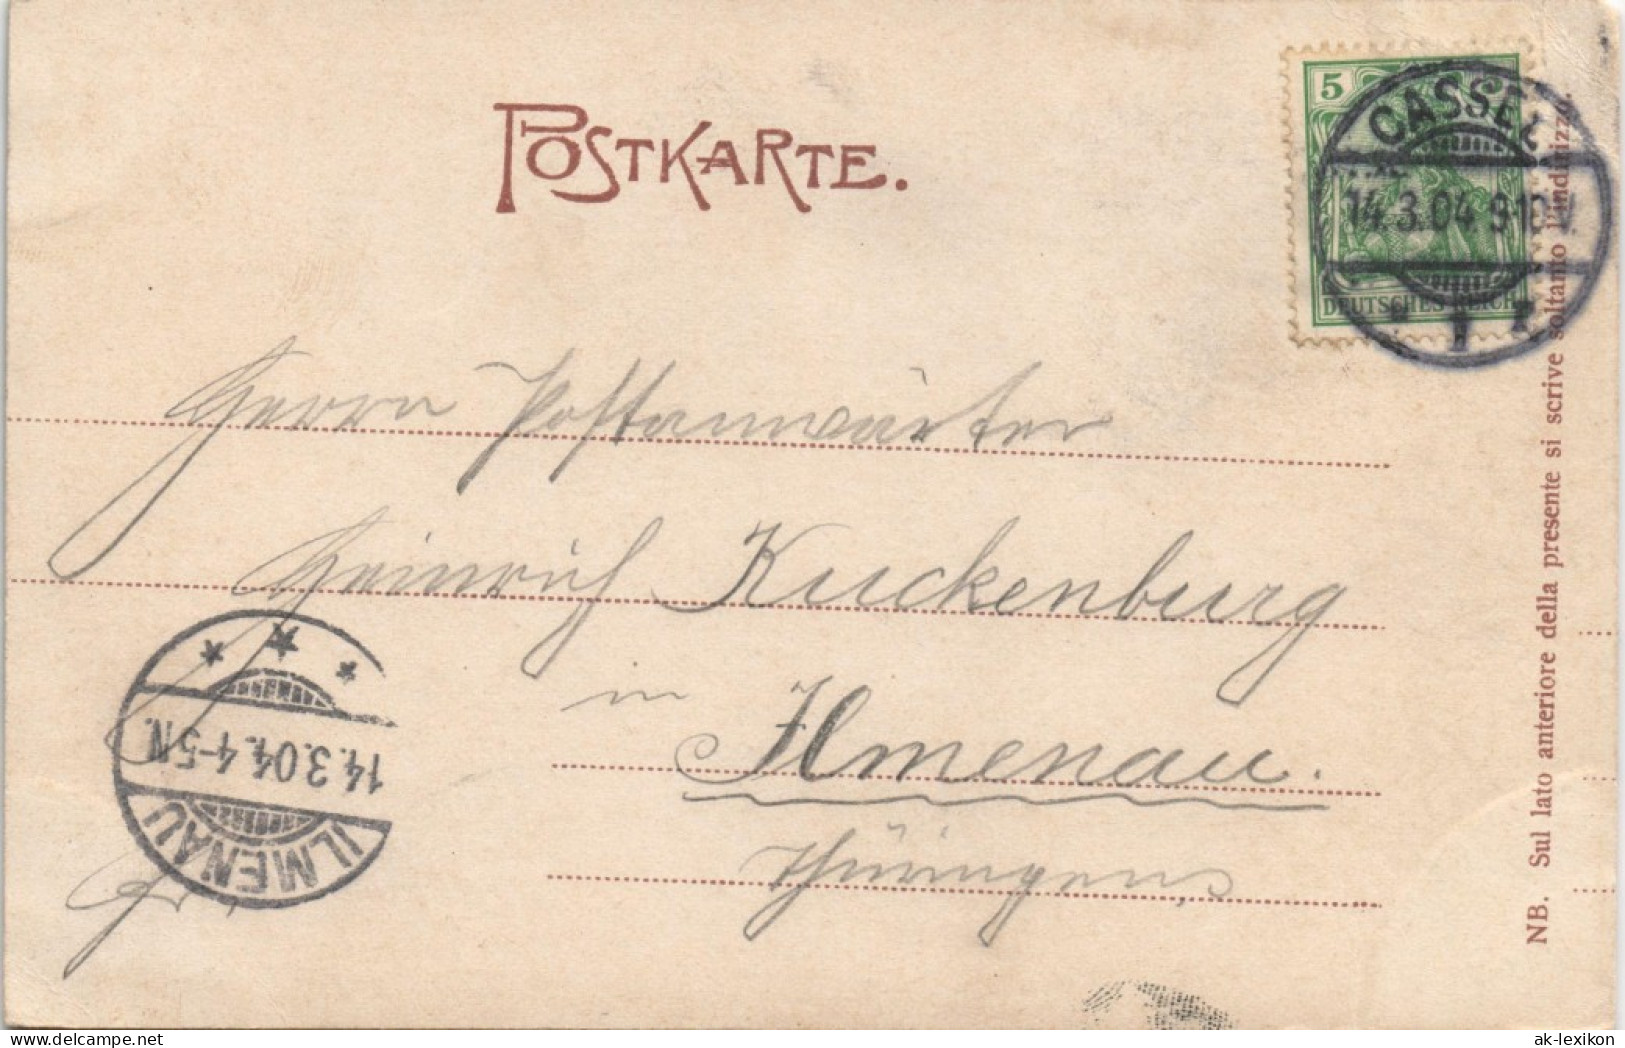 POSTKARTE.
5
DEUTSCHES REICH
CASSEL
14.3.04. 9-10V.
1
Herrn Postanwärter
Heinrich Kuckenburg
in Ilmenau.
Thüringen
14.3.04. 4-5N.
ILMENAU
NB. Sul lato anteriore della presente si scrive soltanto l'indirizzo.
delcampe.net
ak-lexikon